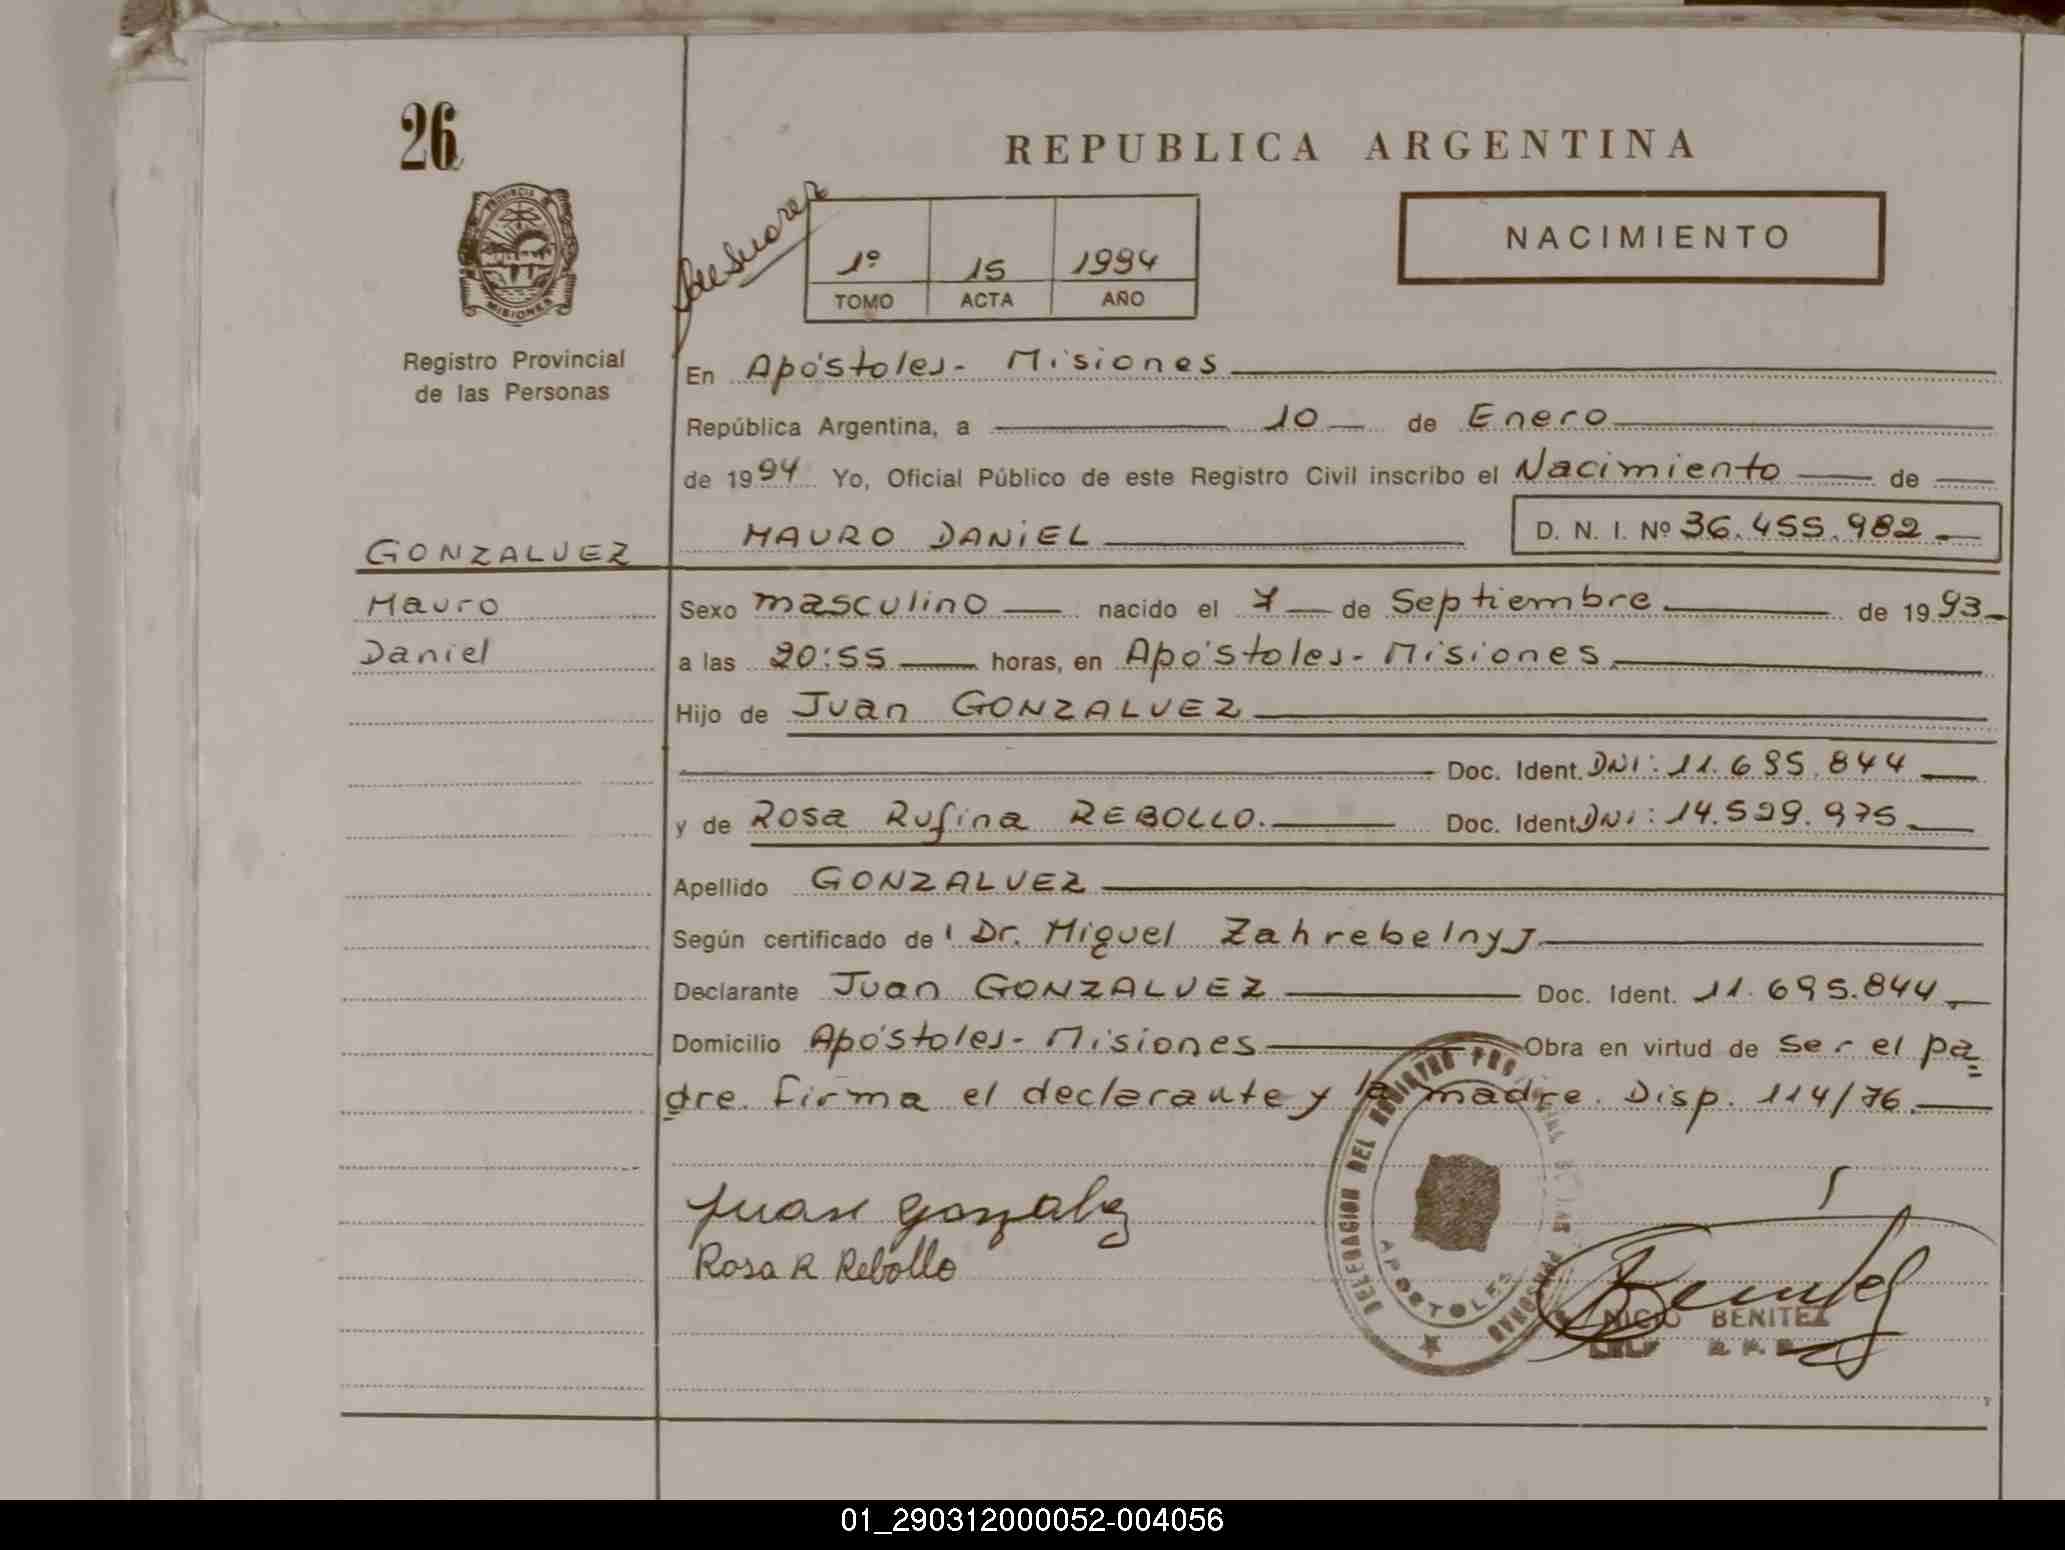 26
PROVINCIA
MISIONES
Registro Provincial
de las Personas
REPUBLICA ARGENTINA
NACIMIENTO
1º 15 1994
TOMO ACTA AÑO
En Apóstoles - Misiones
República Argentina, a 10 de Enero
de 1994 Yo, Oficial Público de este Registro Civil inscribo el Nacimiento de
MAURO DANIEL D. N. I. Nº 36.455.982
GONZALVEZ
Mauro
Daniel
Sexo masculino nacido el 7 de Septiembre de 1993
a las 20:55 horas, en Apóstoles - Misiones
Hijo de Juan GONZALVEZ
Doc. Ident. DNI: 11.695.844
y de Rosa Rufina REBOLLO. Doc. Ident DNI: 14.529.975
Apellido GONZALVEZ
Según certificado de Dr. Miguel Zahrebelnyj
Declarante Juan GONZALVEZ Doc. Ident. 11.695.844
Domicilio Apóstoles - Misiones Obra en virtud de ser el pa
dre. Firma el declarante y la madre. Disp. 114/76.
Juan Gonzalvez
Rosa R Rebollo
DELEGACION DEL REGISTRO PROVINCIAL DE LAS PERSONAS
APOSTOLES
NICIO BENITEZ
01_290312000052-004056